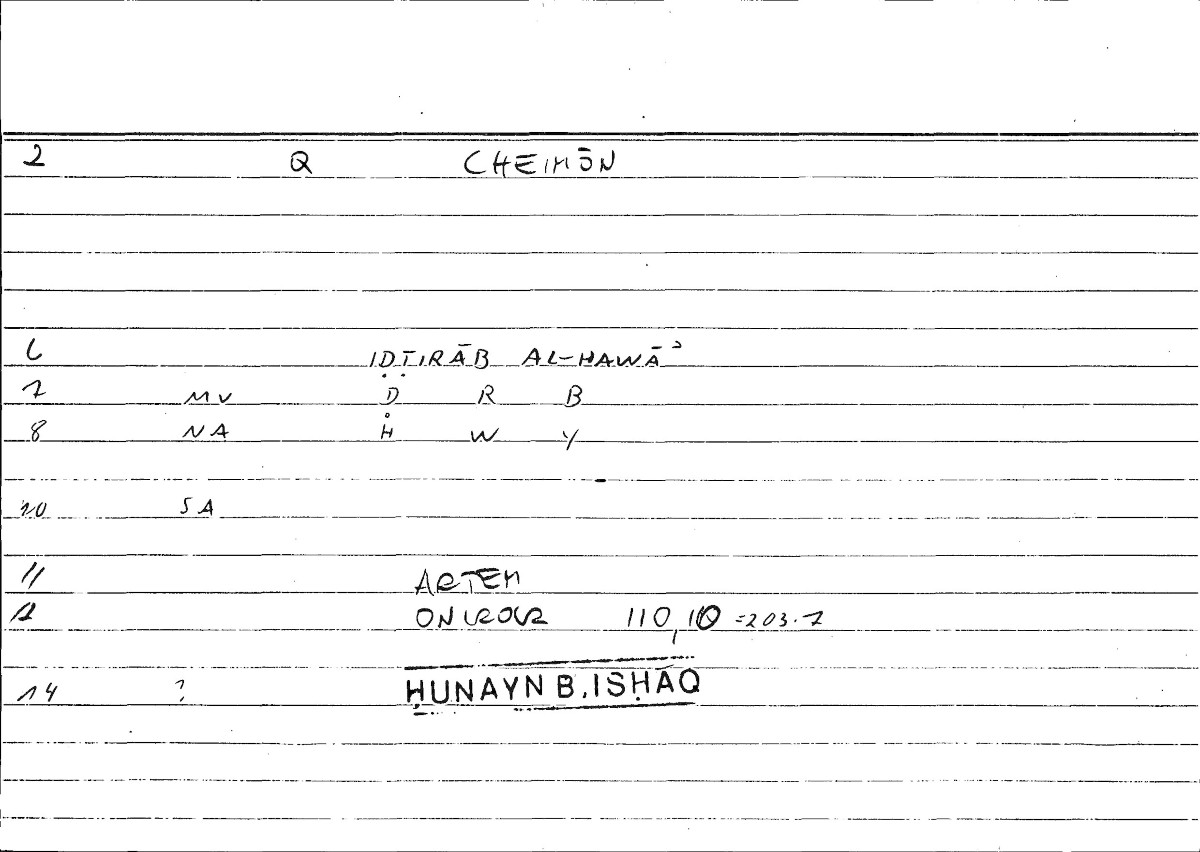 2 Q CHEIMŌN
6 IḌṬIRĀB AL-HAWĀʾ
7 MV Ḍ R B
8 NA H W Y
10 SA
11 ARTEM
12 ONIROCR 110,10 =203.7
14 ? ḤUNAYN B. ISḤĀQ